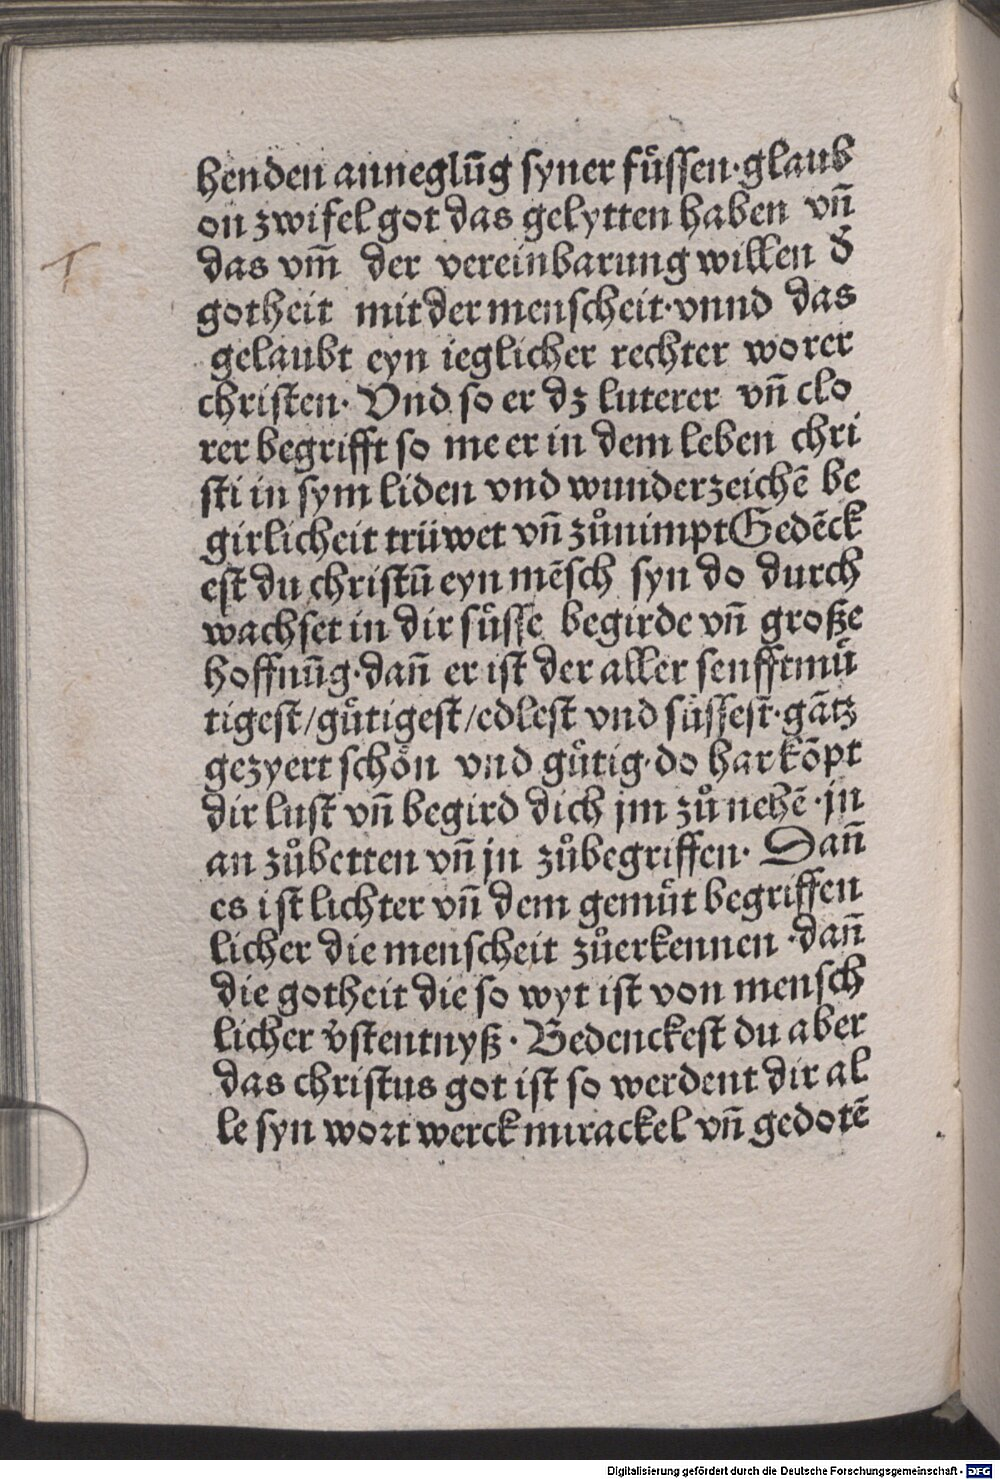 henden anneglūg syner fuͤssen·glaub
on zwifel got das gelytten haben vn̄
das vm̄ der vereinbarung willen d̕
gotheit mit der menscheit·vnnd das
gelaubt eyn ieglicher rechter worer
christen· Vnd so er dz luterer vn̄ clo
rer begrifft so me er in dem leben chri
sti in sym liden vnd wunderzeichē be
girlicheit trüwet vn̄ zuͦnimpt Gedēck
est du christū eyn mēsch syn do durch
wachset in dir suͤsse begirde vn̄ große
hoffnūg·dan̄ er ist der aller senfftmuͤ
tigest/guͤtigest/edlest vnd suͤssest·gātz
gezyert schoͤn vnd guͤtig·do har kōpt
dir lust vn̄ begird dich jm zuͦ nehē·jn
an zuͦbetten vn̄ jn zuͦbegriffen· Dan̄
es ist lichter vn̄ dem gemuͤt begriffen
licher die menscheit zuͦerkennen·dan̄
die gotheit die so wyt ist von mensch
licher v̕stentnyß· Bedenckest du aber
das christus got ist so werdent dir al
le syn wort werck mirackel vn̄ gedotē
Digitalisierung gefördert durch die Deutsche Forschungsgemeinschaft - DFG